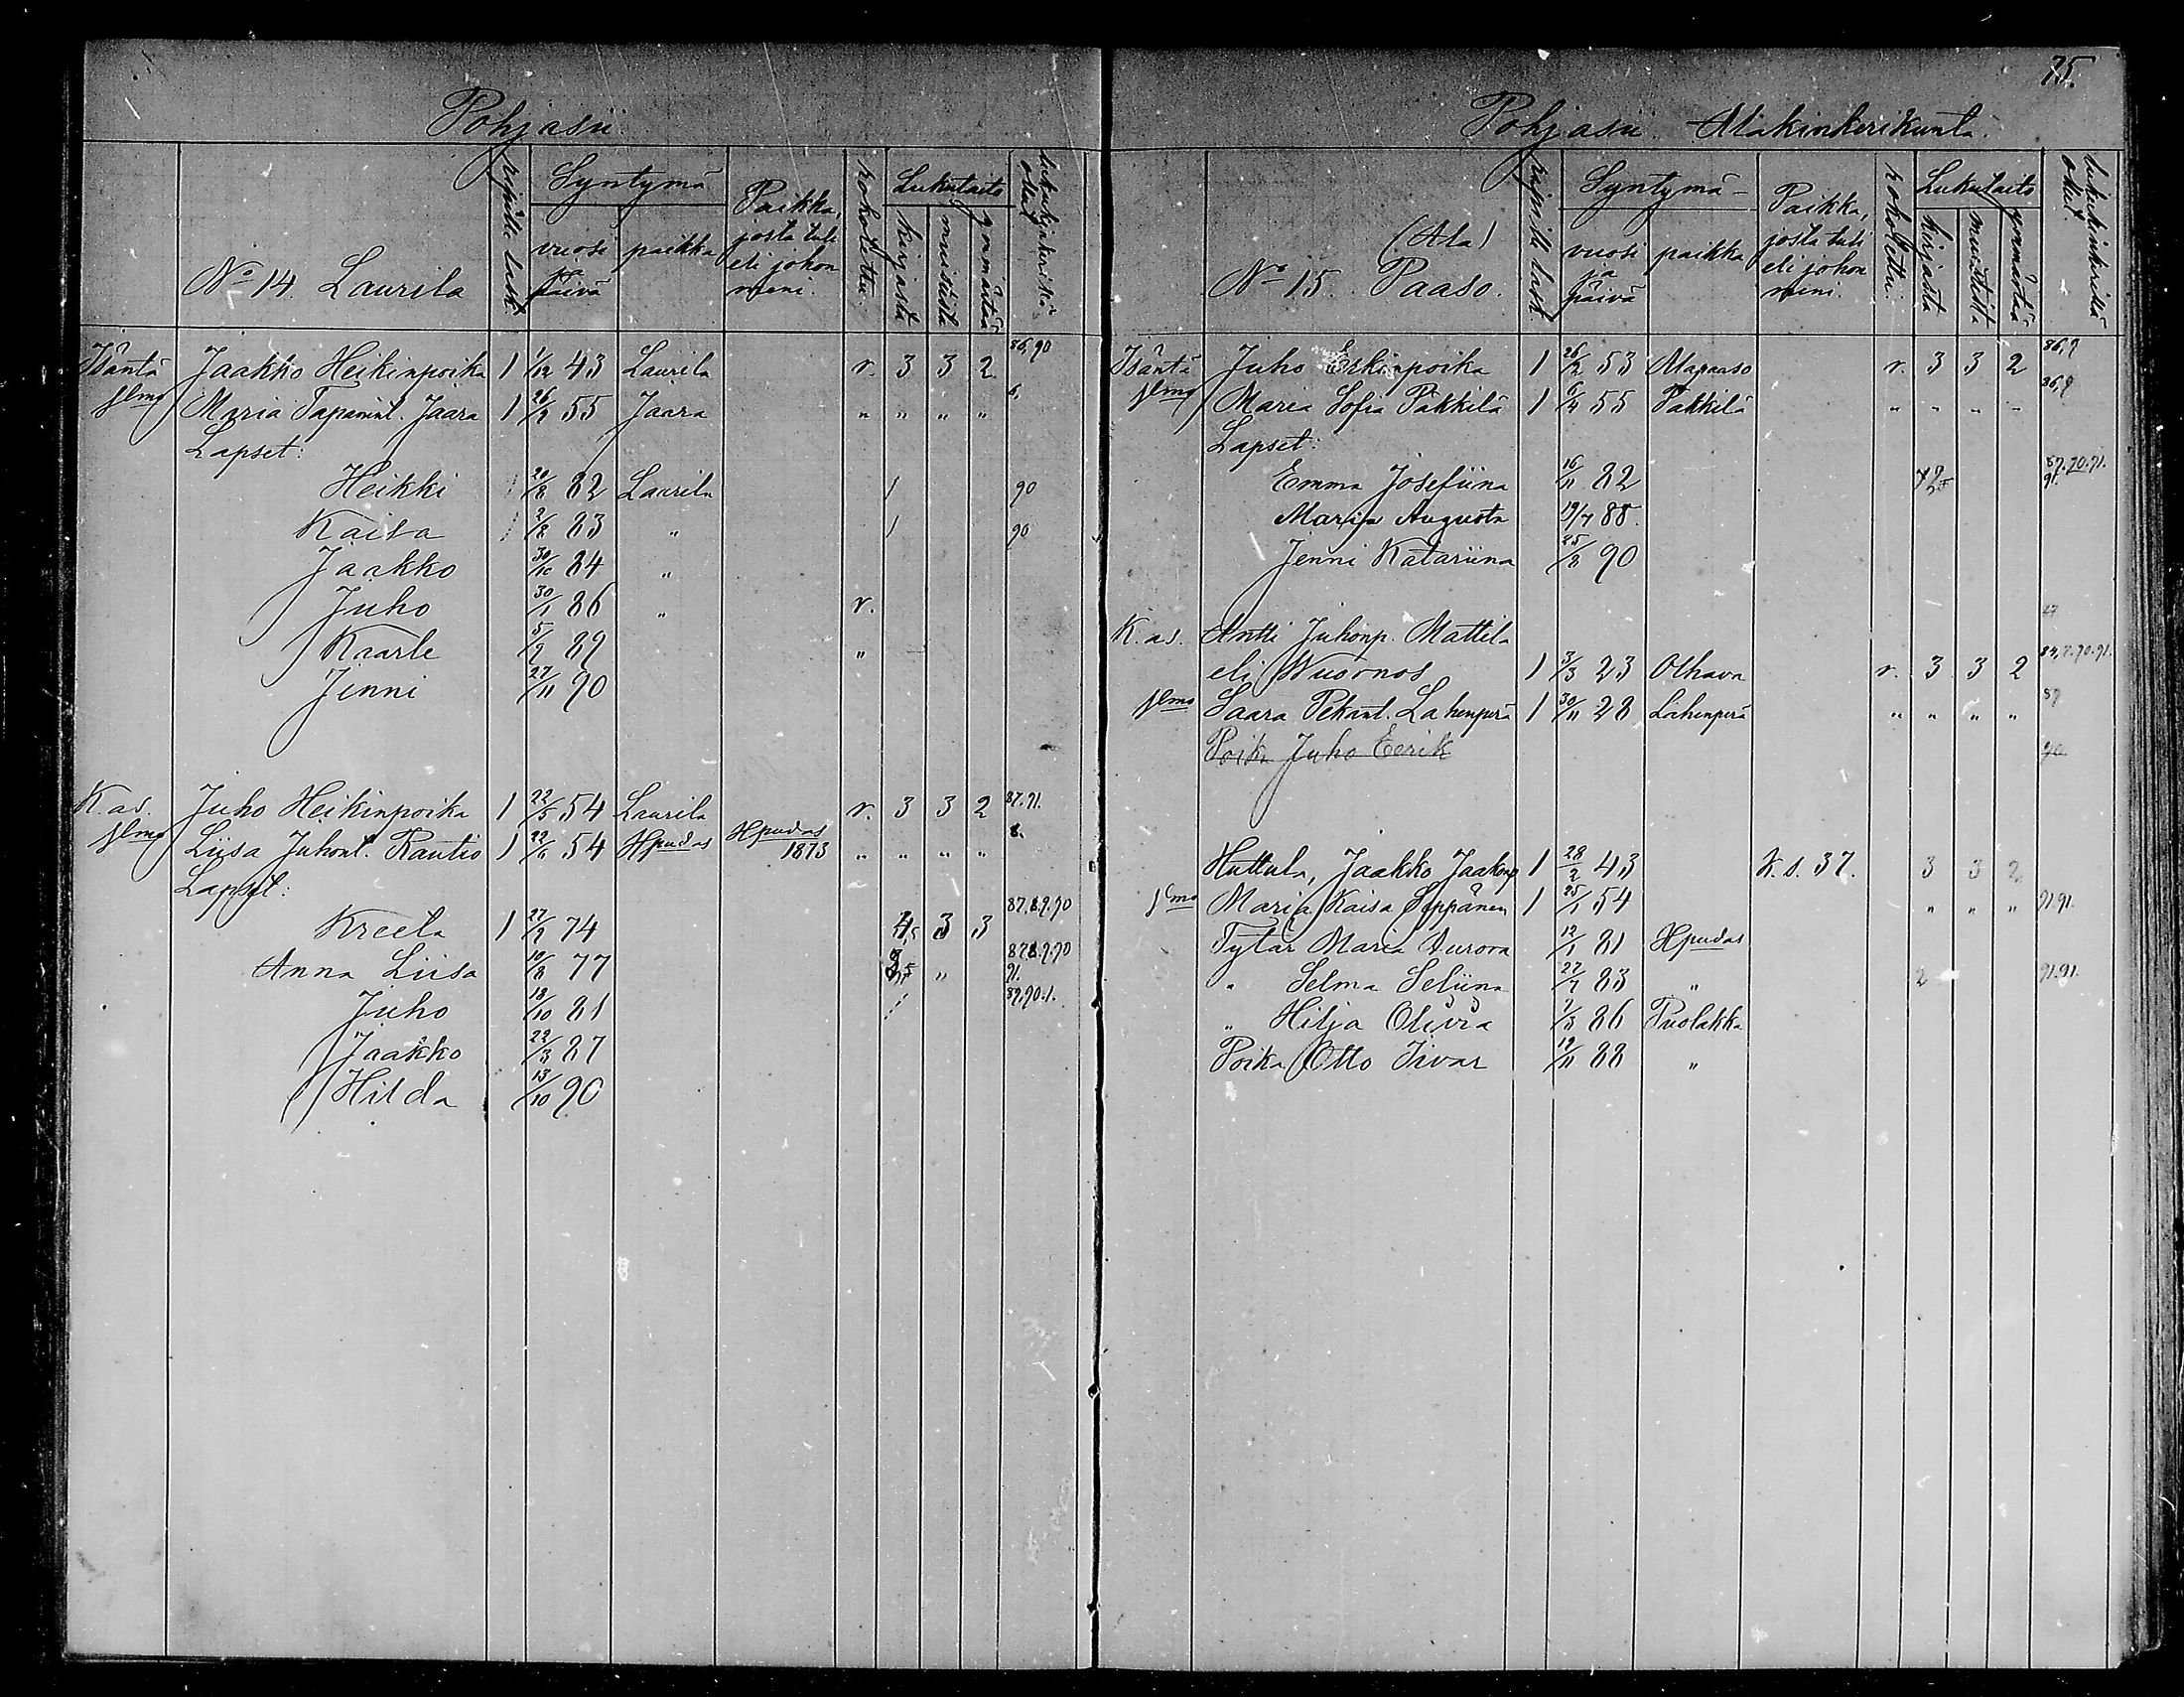 Pohjasii
Ripille lask.
Syntymä
vuosi ja päivä
paikka
Paikka, josta tuli eli johon meni.
rokotettu.
Lukutaito
kirjasta
muistista
ymmärtää
lukukinkerissä ollut
No 14. Laurila
Isäntä Jaakko Heikinpoika 1 1/12 43 Laurila r. 3 3 2 86,90
Maria Tapanint. Jaara 1 26/2 55 Jaara " " " "
Lapset:
Heikki 20/8 82 Laurila / 90
Kaisa 2/8 83 " / 90
Jaakko 30/10 84 "
Juho 30/1 86 " r.
Kaarle 5/9 89 "
Jenni 27/11 90
K. as. Juho Heikinpoika 1 22/5 54 Laurila r. 3 3 2 87.91.
Liisa Juhont. Rautio 1 22/6 54 Hpudas Hpudas 1873 " " " " 8.
Lapset:
Kreeta 1 27/9 74 4 3 3 87.8.9.90
Anna Liisa 10/8 77 " 87.8.9.90 91.
Juho 18/10 81 / 89.90.1.
Jaakko 22/3 87
Hilda 13/10 90
75.
Pohjasii. Alakinkerikunta.
Ripille lask.
Syntymä-
vuosi ja päivä
paikka
Paikka, josta tuli eli johon meni.
rokotettu.
Lukutaito
kirjasta
muistista
ymmärtää
lukukinkerissä ollut
(Ala)
No 15. Paaso.
Isäntä Juho Eskinpoika 1 26/2 53 Alapaaso r. 3 3 2 86,9
Maria Sofia Pakkila 1 6/4 55 Pakkila " " " " 86,9
Lapset:
Emma Josefiina 16/11 82 87.90.91. 91.
Maria Augusta 19/7 88.
Jenni Katariina 25/8 90
K. as. Antti Juhonp. Mattila
eli Wuornos 1 3/3 23 Olhava r. 3 3 2
Saara Pekant. Lahenperä 1 30/11 28 Lahenperä " " " " 87
Poika Juho Eerik
Huttula, Jaakko Jaakonp 1 28/2 43 K. s. 37. 3 3 2
Maria Kaisa Seppänen 1 25/1 54 " " " 91.91.
Tytär Maria Aurora 12/1 81 Hpudas
" Selma Seliina 27/7 83 " 2 91.91.
" Hilja Olivia 7/3 86 Puolakka
Poika Otto Iivar 19/11 88 "